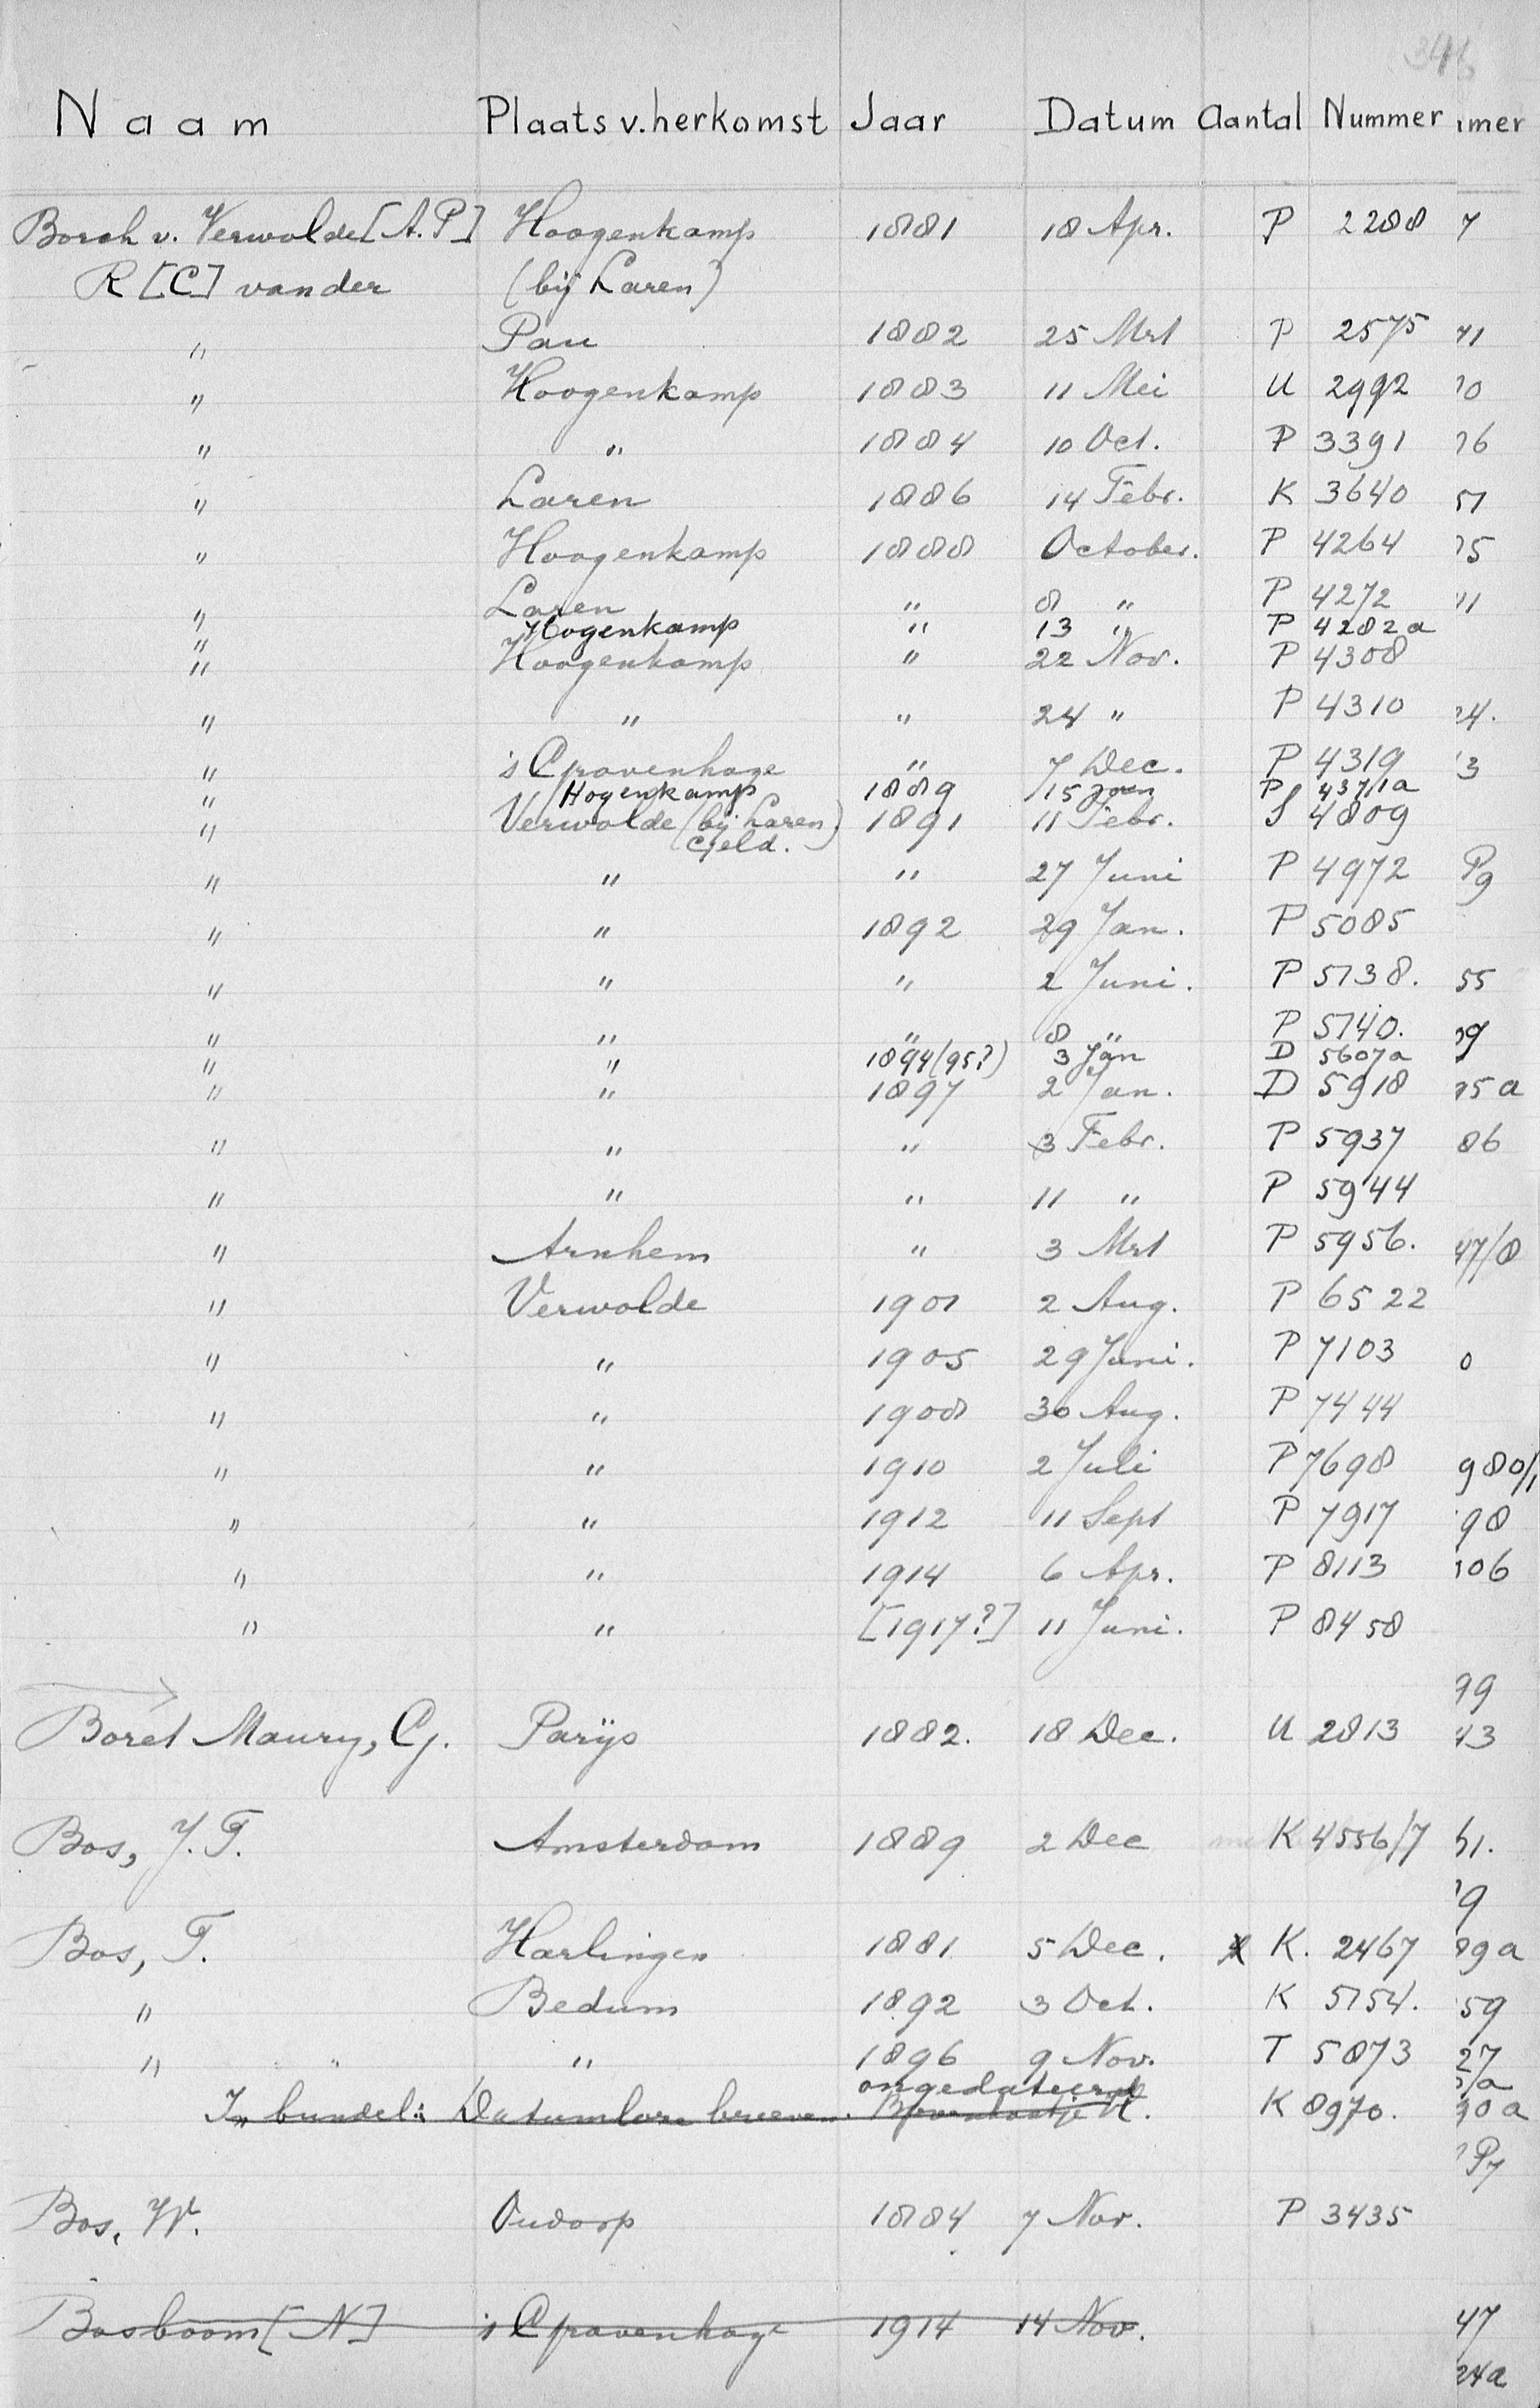 346
Naam Plaats v. herkomst Jaar Datum Aantal Nummer mer
Borch v. Verwolde [A.P] Hoogenkamp 1881 18 Apr. P 2288 7
R [C] van der (bij Laren)
" Pau 1882 25 Mrt P 2575 71
" Hoogenkamp 1883 11 Mei U 2992 0
" " 1884 10 Oct. P 3391 6
" Laren 1886 14 Febr. K 3640 51
" Hoogenkamp 1888 October. P 4264 5
" Laren " 8 " P 4272 11
" Hogenkamp " 13 " P 4282a
" Hoogenkamp " 22 Nov. P 4308
" " " 24 " P 4310 24.
" 's Gravenhage " 7 Dec. P 4319 3
" Hogenkamp 1889 15 Jan P 4371a
" Verwolde (bij Laren) 1891 11 Febr. S 4809
Geld.
" " " 27 Juni P 4972 P9
" " 1892 29 Jan. P 5085
" " " 2 Juni. P 5138. 55
" " " 8 " P 5140. 9
" " 1894 (95?) 3 Jan D 5607a
" " 1897 2 Jan. D 5918 5a
" " " 3 Febr. P 5937 86
" " " 11 " P 5944
" Arnhem " 3 Mrt P 5956. 47/8
" Verwolde 1901 2 Aug. P 6522
" " 1905 29 Juni. P 7103 0
" " 1908 30 Aug. P 7444
" " 1910 2 Juli P 7698 980/1
" " 1912 11 Sept P 7917 98
" " 1914 6 Apr. P 8113 106
" " [1917?] 11 Juni. P 8458
99
Boret Maury, G. Parijs 1882. 18 Dec. U 2813 43
Bos, J. T. Amsterdam 1889 2 Dec K 4556/7 51.
9
Bos, T. Harlingen 1881 5 Dec. K. 2467 89a
" Bedum 1892 3 Oct. K 5154. 59
" " " 1896 9 Nov. T 5873 27
ongedateerd /a
In bundel: Datumloze brieven. K. K 8970. 90a
P7
Bos, W. Oudorp 1884 7 Nov. P 3435
Bosboom [N] 's Gravenhage 1914 14 Nov. 47
24a